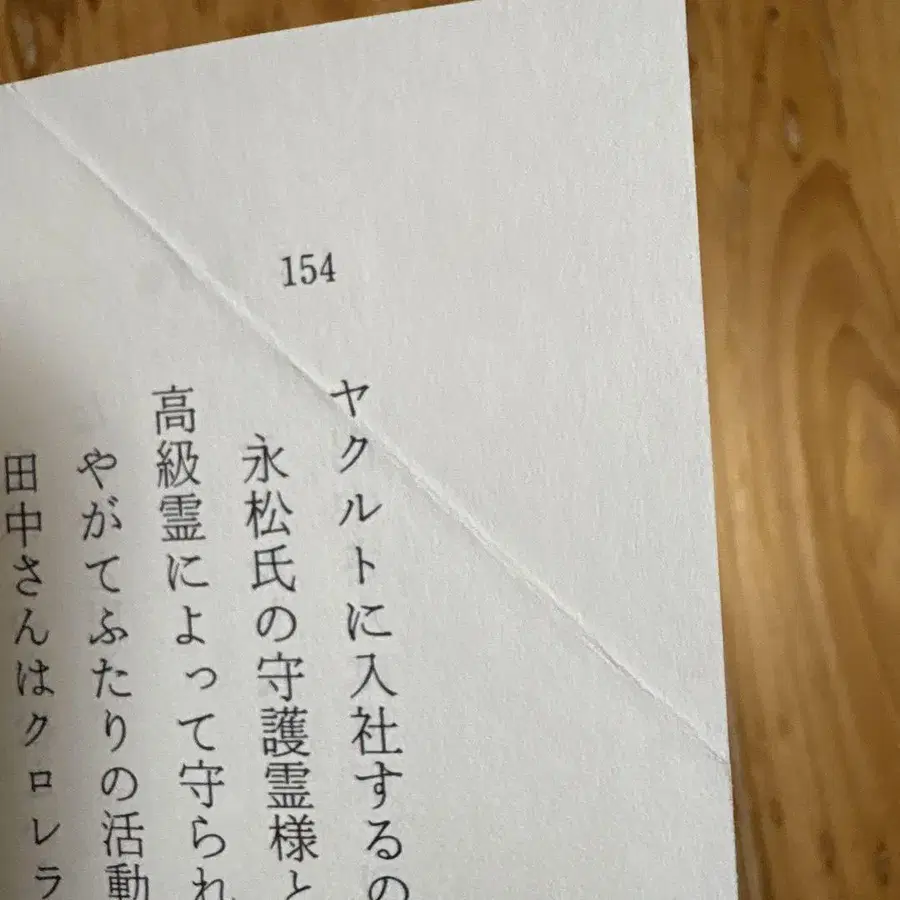 154
ヤクルトに入社するの
永松氏の守護霊様と
高級霊によって守られ
やがてふたりの活動
田中さんはクロレラ